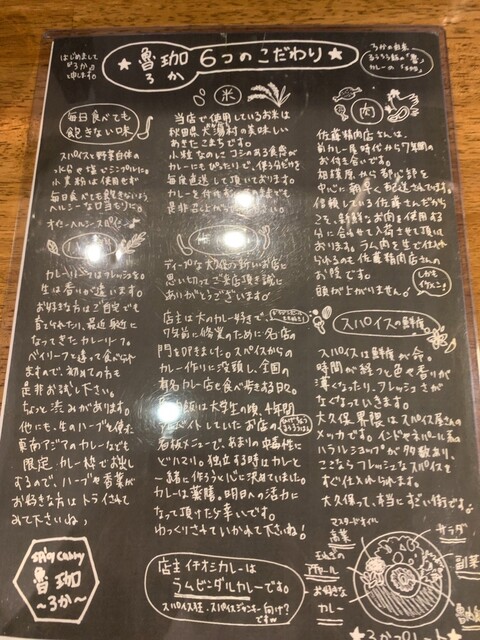 はじめまして
"ろか"と
申します。
★ 魯珈 6つのこだわり ★
ろか
ろかの由来
カレーの
毎日食べても
飽きない味
スパイスと野菜自体の
水分や塩でシンプルに。
小麦粉は使用せず
毎日食べても飽きないよう
ヘルシーな口当たりに。
カレーリーフはフレッシュを。
生は香りが違います。
お好きな方はご自宅でも
育てられたり、最近 身近に
なってきたカレーリーフ。
ベイリーフと違って食べられ
ますので、初めての方も
是非お試し下さい。
ちょっと渋みがあります。
他にも、生のハーブを使った
東南アジアのカレーなども
限定カレー枠でお出し
するので、ハーブや香菜が
お好きな方はトライされて
みて下さいね♪
spicy curry
魯珈
~ろか~
米
当店で使用しているお米は
秋田県大潟村の美味しい
あきたこまち です。
小粒なのにコシのある食感が
カレーにもぴったりで、使う分だけを
毎度直送して頂いております。
カレーを付けずそのままでも
是非
ディープな大久保の
思い切ってご来店頂き誠に
ありがとうございます。
店主は大のカレー好きで、
7年前に修業のために名店の
門を叩きました。スパイスからの
カレー作りに没頭し、全国の
有名カレー店を食べ歩きる日々。
は大学生の頃、
バイトしていたお店の
看板メニューで、あまりの中毒性に
どハマり。独立する時はカレーと
一緒に作ろうと心に決めていました。
カレーは薬膳。明日への活力に
なって頂けたら幸いです。
ゆっくりされていかれて下さいね!
店主イチオシカレーは
ラムビンダルカレーです。
スパイス狂・スパイスジャンキー向け?
ですw
肉
佐藤精肉店さんは、
前カレー屋時代から7年間の
お付き合いです。
相模原から都心部を
中心に朝早く配送されています。
信頼している佐藤さんだから
こそ、新鮮なお肉を使用する
分に合わせて入荷させて頂いて
おります。ラム肉を生で仕入れ
られるのも佐藤精肉店さんの
お陰です。
頭が上がりません。
しかも
イケメン!
スパイスの鮮度
スパイスは鮮度が命。
時間が経つと色や香りが
薄くなったり、フレッシュさが
なくなっていきます。
大久保界隈はスパイス屋さんの
メッカです。インドやネパール系の
ハラルショップが多数あり、
ここならフレッシュなスパイスを
すぐ仕入れられます。
大久保って、本当にすごい街です。
マスタードオイル
サラダ
玉ねぎ
アチャール
副菜
お好きな
カレー